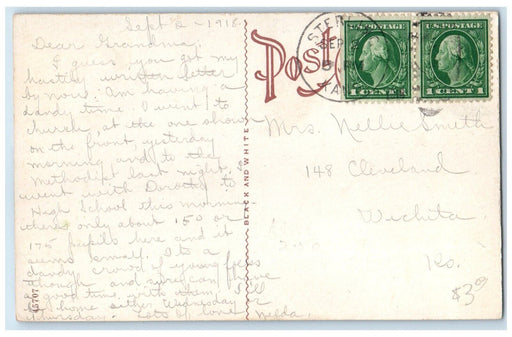 Sept 2 - 1918
Dear Grandma,
I guess you got my
hasty written letter
by now. Am having a
dandy time. I went to
church, at the one shown
on the front, yesterday
morning and to the
Methodist last night. I
went with Dorothy to
High School this morning
there's only about 150 or
175 pupils here and it
seems small. Its a
dandy crowd of young folks
though and sure can have
a good time with them. I'll
be home either Wednesday or
Thursday. Lots of love
Nelda.
Post
STER
SEP
U.S. POSTAGE
1 CENT 1
U.S. POSTAGE
1 CENT 1
BLACK AND WHITE
65707
Mrs. Nellie Smith
148 Cleveland
Wichita
Ks.
$3.00